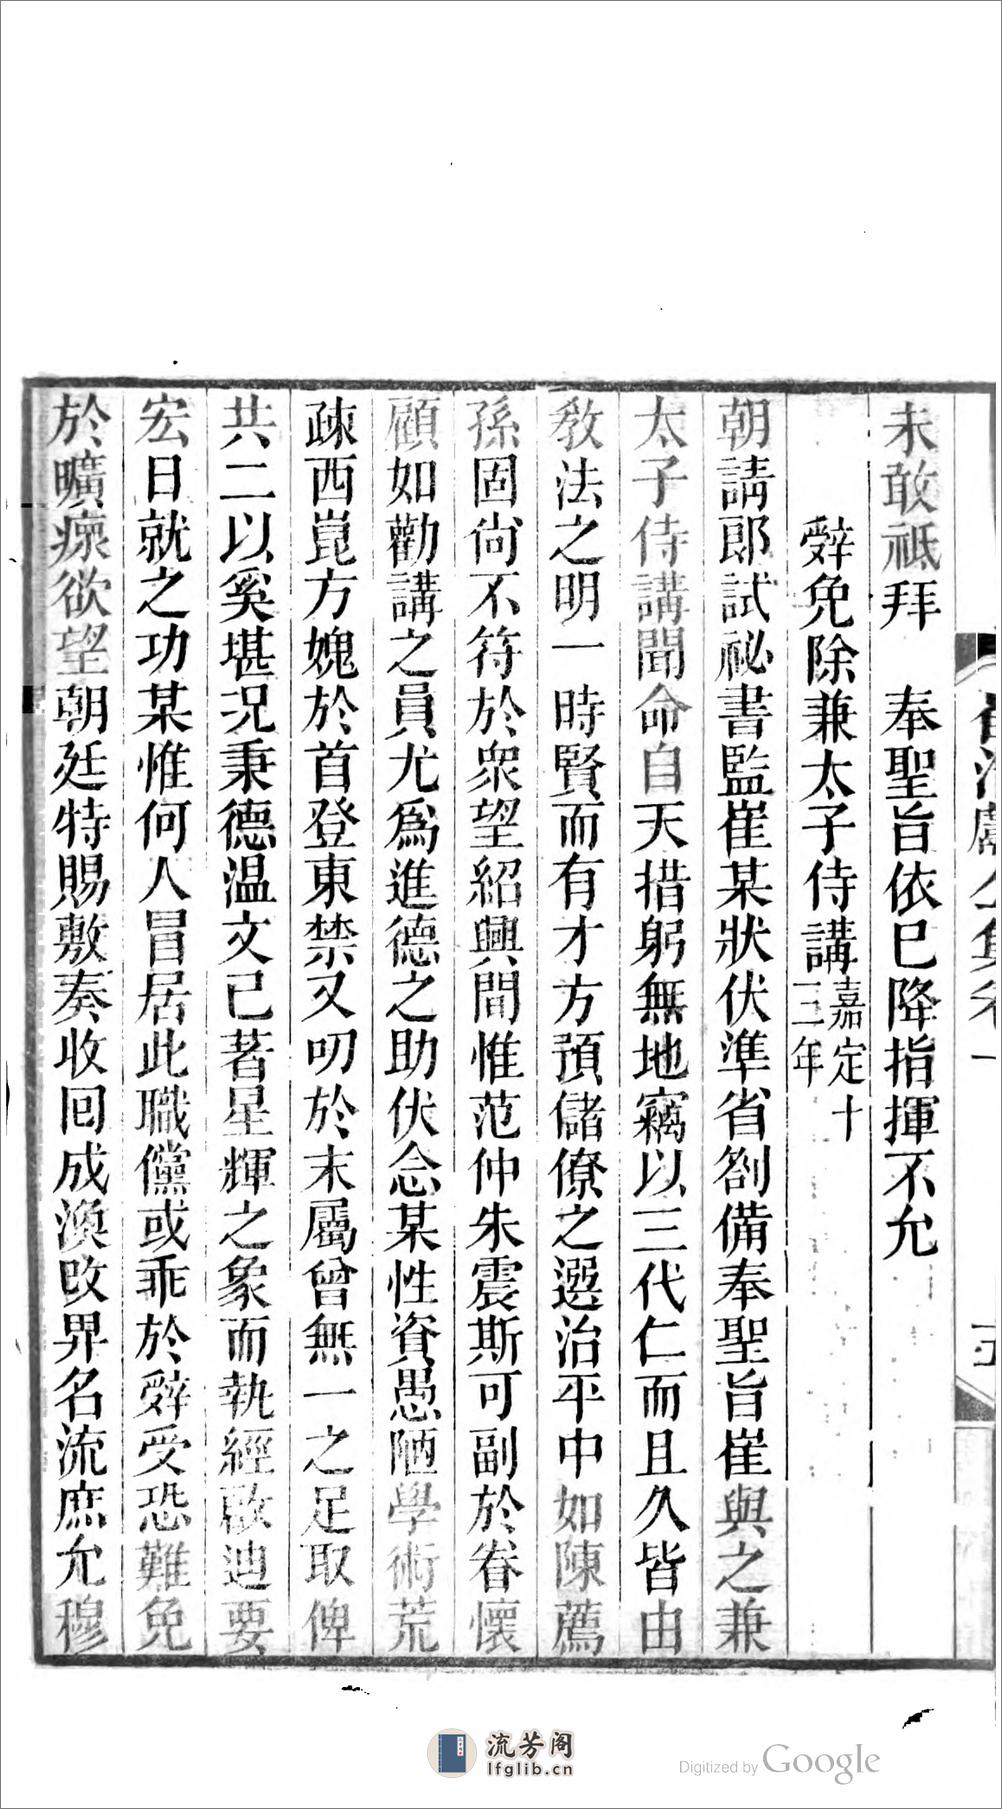 未敢祗拜　奉聖旨依已降指揮不允
辭免除兼太子侍講嘉定十三年
朝請郎試祕書監崔某狀伏準省劄備奉聖旨崔與之兼
太子侍講聞命自天措躬無地竊以三代仁而且久皆由
敎法之明一時賢而有才方預儲僚之選治平中如陳薦
孫固尙不符於衆望紹興間惟范仲朱震斯可副於眷懷
顧如勸講之員尤爲進德之助伏念某性資愚陋學術荒
疎西崑方媿於首登東禁又叨於末屬曾無一之足取俾
共二以奚堪况秉德温文已著星輝之象而執經啟迪要
宏日就之功某惟何人冒居此職儻或乖於辭受恐難免
於曠瘝欲望朝廷特賜敷奏收回成渙改畀名流庶允穆
流芳阁
lfglib.cn
Digitized by Google